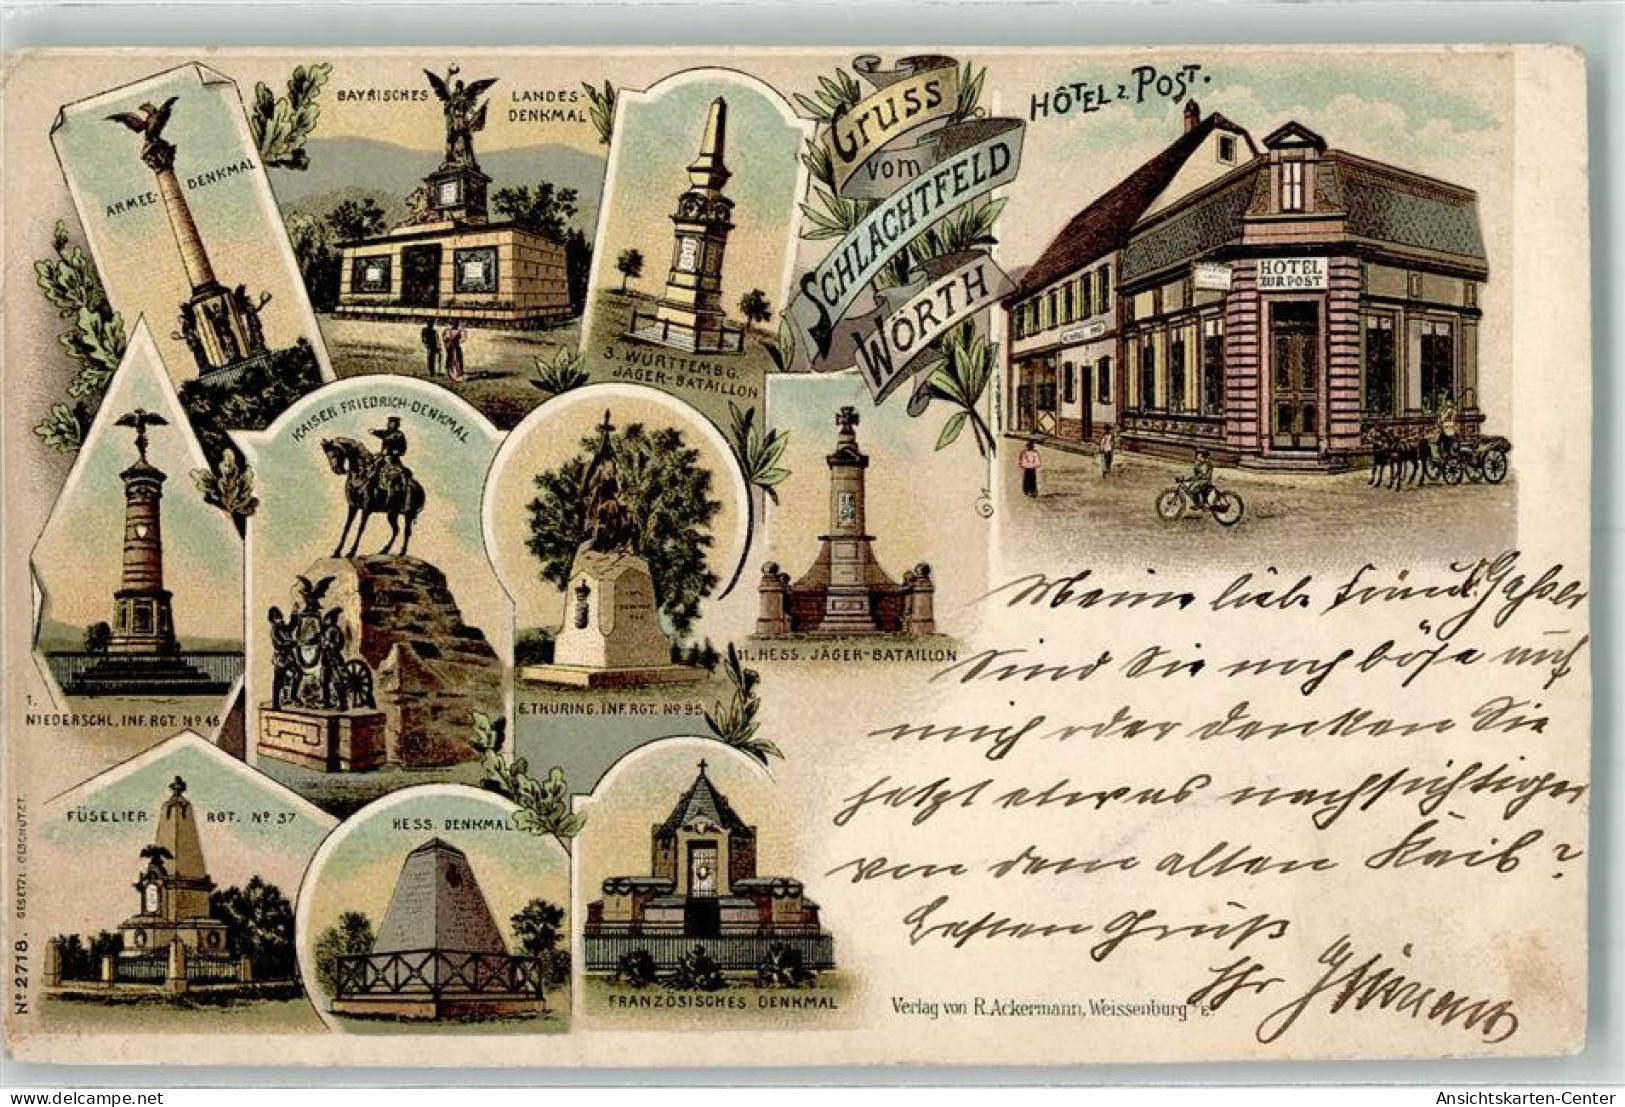 GRUSS
vom
SCHLACHTFELD
WÖRTH
HÔTEL z. POST.
HOTEL
ZUR POST
ARMEE-DENKMAL
BAYRISCHES LANDES-
DENKMAL
3. WÜRTTEMBG.
JÄGER-BATAILLON
KAISER FRIEDRICH-DENKMAL
1.
NIEDERSCHL. INF. RGT. No 46
6. THÜRING. INF. RGT. No 95
11. HESS. JÄGER-BATAILLON
FÜSELIER RGT. No 37
HESS. DENKMAL
FRANZÖSISCHES DENKMAL
Meine liebe Freund
Sind Sie noch böse auf
mich oder denken Sie
jetzt etwas nachsichtiger
von dem alten Kaib?
Besten Gruß
Ihr
Verlag von R. Ackermann, Weissenburg i/E.
No 2718. GESETZL. GESCHÜTZT.
Ansichtskarten-Center